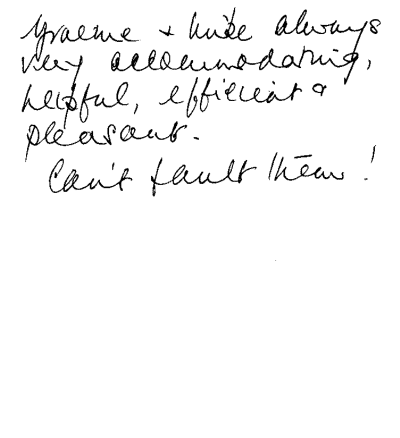 Graeme + Mike always
very accommodating,
helpful, efficient &
pleasant.
Can't fault them!